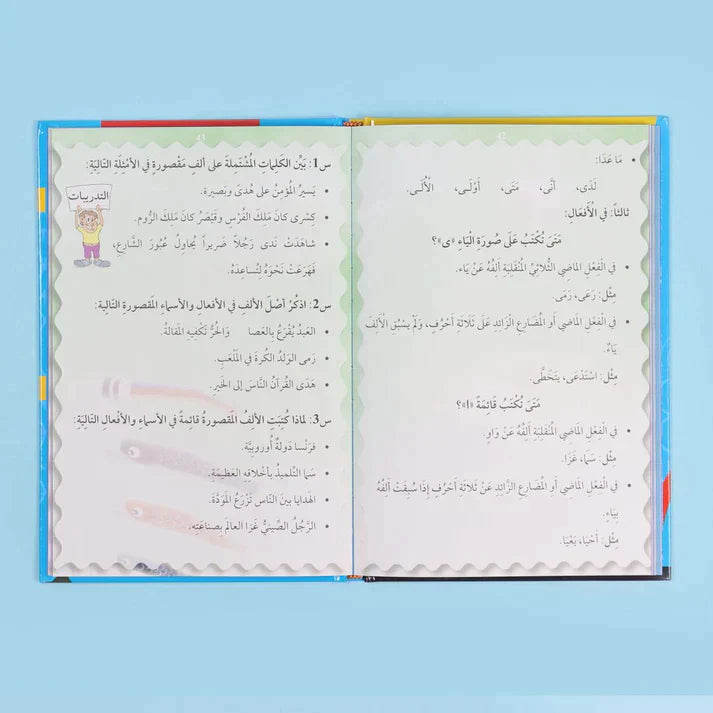 42
• مَا عَدَا:
لَدَى، أَنَّى، مَتَى، أَوْلَـى، الأُلَـى.
ثالثاً: في الأَفْعَالِ:
مَتَى تُكْتَبُ عَلَى صُورَةِ الْيَاءِ «ى»؟
• في الْفِعْلِ الماضِي الثُّلاثِيِّ المُنْقَلِبَةِ أَلِفُهُ عَنْ يَاء.
مِثْل: رَعَى، رَمَى.
• في الْفِعْلِ الماضِي أَو المُضَارِعِ الزَّائِدِ عَلَى ثَلاثَةِ أَحْرُفٍ، وَلَمْ يَسْبِقِ الأَلِفَ
يَاءٌ.
مِثْل: اسْتَدْعَى، يَتَخَطَّى.
مَتَى تُكْتَبُ قَائِمَةً «ا»؟
• في الْفِعْلِ الماضِي المُنْقَلِبَةِ أَلِفُهُ عَنْ وَاوٍ.
مِثْل: سَمَا، غَزَا.
• في الْفِعْلِ الماضِي أَو المُضَارِعِ الزَّائِدِ عَنْ ثَلاثَةِ أَحْرُفٍ إِذَا سُبِقَتْ أَلِفُهُ
بِيَاءٍ.
مِثْل: أَحْيَا، يَعْيَا.
43
التدريبات
س1: بَيِّن الكَلِماتِ المُشْتَمِلةَ على ألفٍ مَقْصورةٍ في الأمْثِلَةِ التّاليَةِ:
• يَسيرُ المُؤمِنُ على هُدىً وبَصيرة.
• كِسْرى كانَ مَلِكَ الفُرْسِ وقَيْصَرُ كانَ مَلِكَ الرُّوم.
• شاهَدَتْ نَدى رَجُلاً ضَريراً يُحاوِلُ عُبُورَ الشَّارِعِ،
فَهَرَعَتْ نَحْوَهُ لِتُساعِدَهُ.
س2: اذكُرْ أصْلَ الألِفِ في الأفعالِ والأسماءِ المَقصورةِ التّالية:
• العَبدُ يُقْرَعُ بِالعَصا وَالحُرُّ تَكْفِيهِ المَقالةُ.
• رَمى الوَلَدُ الكُرةَ في المَلْعَبِ.
• هَدَى القُرآنُ النَّاسَ إلى الخَيرِ.
س3: لماذا كُتِبَتِ الألِفُ المَقصورةُ قائِمةً في الأسماءِ والأفْعالِ التّاليَةِ:
• فَرَنْسا دَولةٌ أُوروبيَّة.
• سَمَا التِّلميذُ بأخلاقِهِ العَظيمَةِ.
• الهدايا بَينَ النّاسِ تَزْرَعُ المَوَدَّةَ.
• الرَّجُلُ الصِّينيُّ غَزَا العالَمَ بِصِناعَتِه.